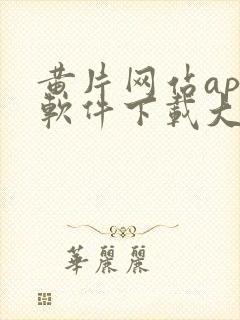 黄片网佔ap
軟件下載大
華麗麗